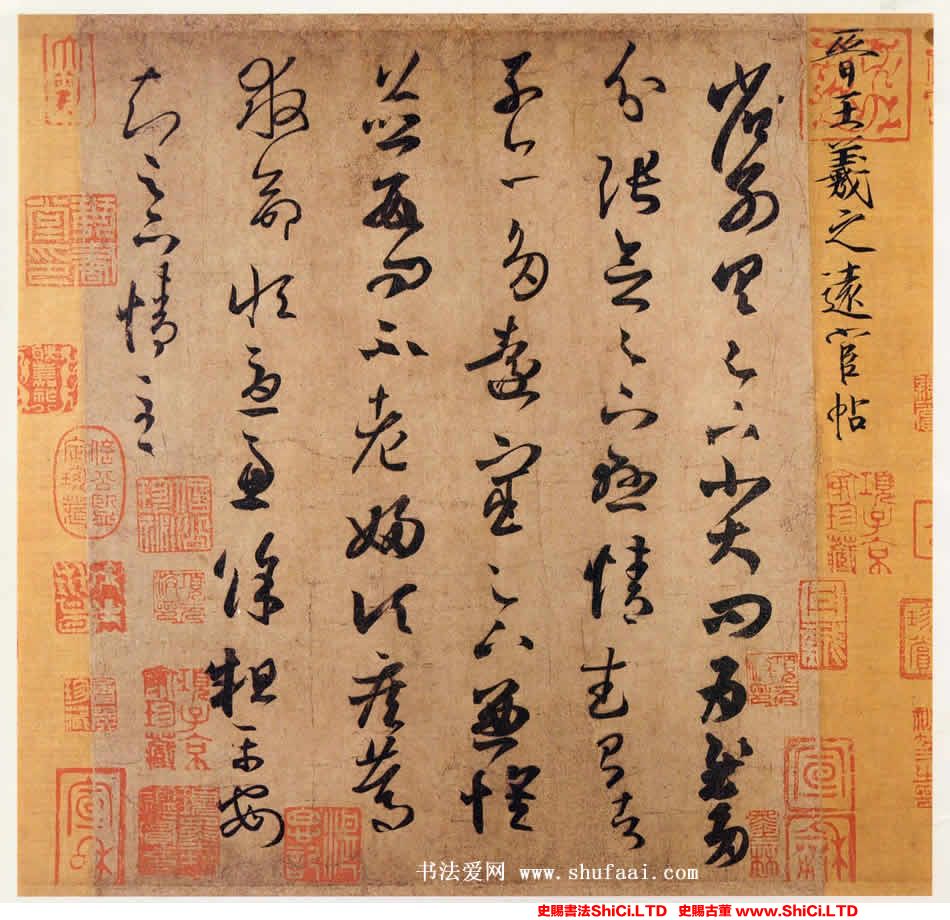 晉王羲之遠宦帖
省別具足下小大問為慰多
分張念足下懸情武昌諸
子亦多遠宦足下兼懷
並數問不老婦頃疾篤
救命恒憂慮餘粗平安
知足下情至
項子京家珍藏
項子京家珍藏
宣和
书法爱网 www.shufaai.com
史賜書法ShiCi.LTD 史賜古董 www.ShiCi.LTD